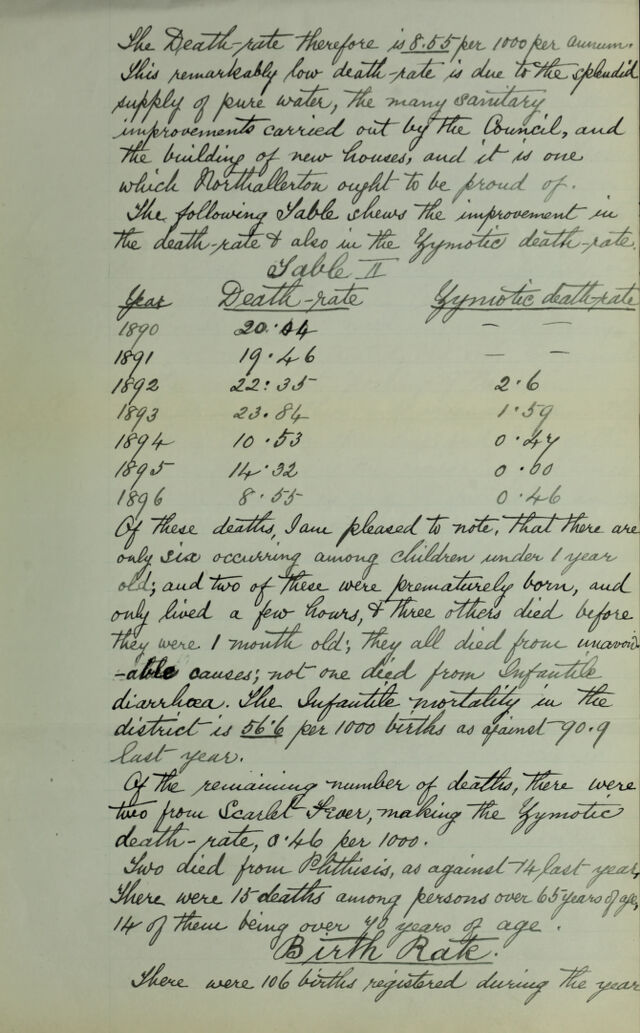 The Death-rate therefore is 8.55 per 1000 per annum.
This remarkably low death-rate is due to the splendid
supply of pure water, the many sanitary
improvements carried out by the Council, and
the building of new houses, and it is one
which Northallerton ought to be proud of.
The following Table shews the improvement in
the death-rate & also in the Zymotic death-rate.
Table II
Year Death-rate Zymotic death-rate
1890 20.44 – –
1891 19.46 – –
1892 22.35 2.6
1893 23.84 1.59
1894 10.53 0.47
1895 14.32 0.00
1896 8.55 0.46
Of these deaths, I am pleased to note, that there are
only six occurring among children under 1 year
old; and two of these were prematurely born, and
only lived a few hours, & three others died before
they were 1 month old; they all died from unavoid
-able causes; not one died from Infantile
diarrhœa. The Infantile mortality in the
district is 56.6 per 1000 births as against 90.9
last year.
Of the remaining number of deaths, there were
two from Scarlet Fever, making the Zymotic
death-rate, 0.46 per 1000.
Two died from Phthisis, as against 14 last year,
There were 15 deaths among persons over 65 years of age,
14 of them being over 70 years of age.
Birth Rate.
There were 106 births registered during the year